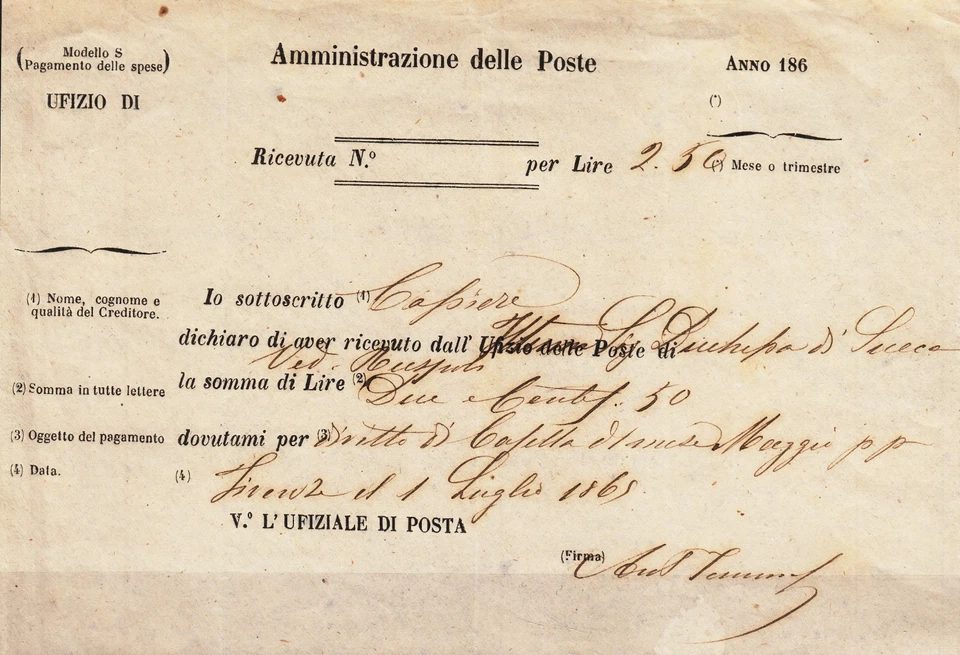 (Modello S
Pagamento delle spese)
UFIZIO DI
Amministrazione delle Poste
ANNO 186
(*)
Ricevuta N.º per Lire 2. 50
(*) Mese o trimestre
(1) Nome, cognome e
qualità del Creditore.
(2) Somma in tutte lettere
(3) Oggetto del pagamento
(4) Data.
Io sottoscritto (1) Cassiere
dichiaro di aver ricevuto dall' Ufizio delle Poste di Duchessa di Sueca
Ved. Ruspoli
la somma di Lire (2) Due e Cent. 50
dovutami per (3) diritto di Casella di mese Maggio p p
(4) Firenze il 1 Luglio 1865
V.º L'UFIZIALE DI POSTA
(Firma)